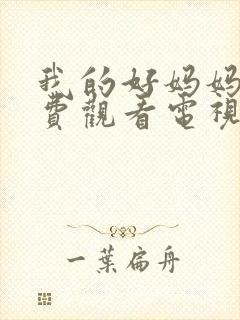 我的好妈妈
費觀看電視
一葉扁舟